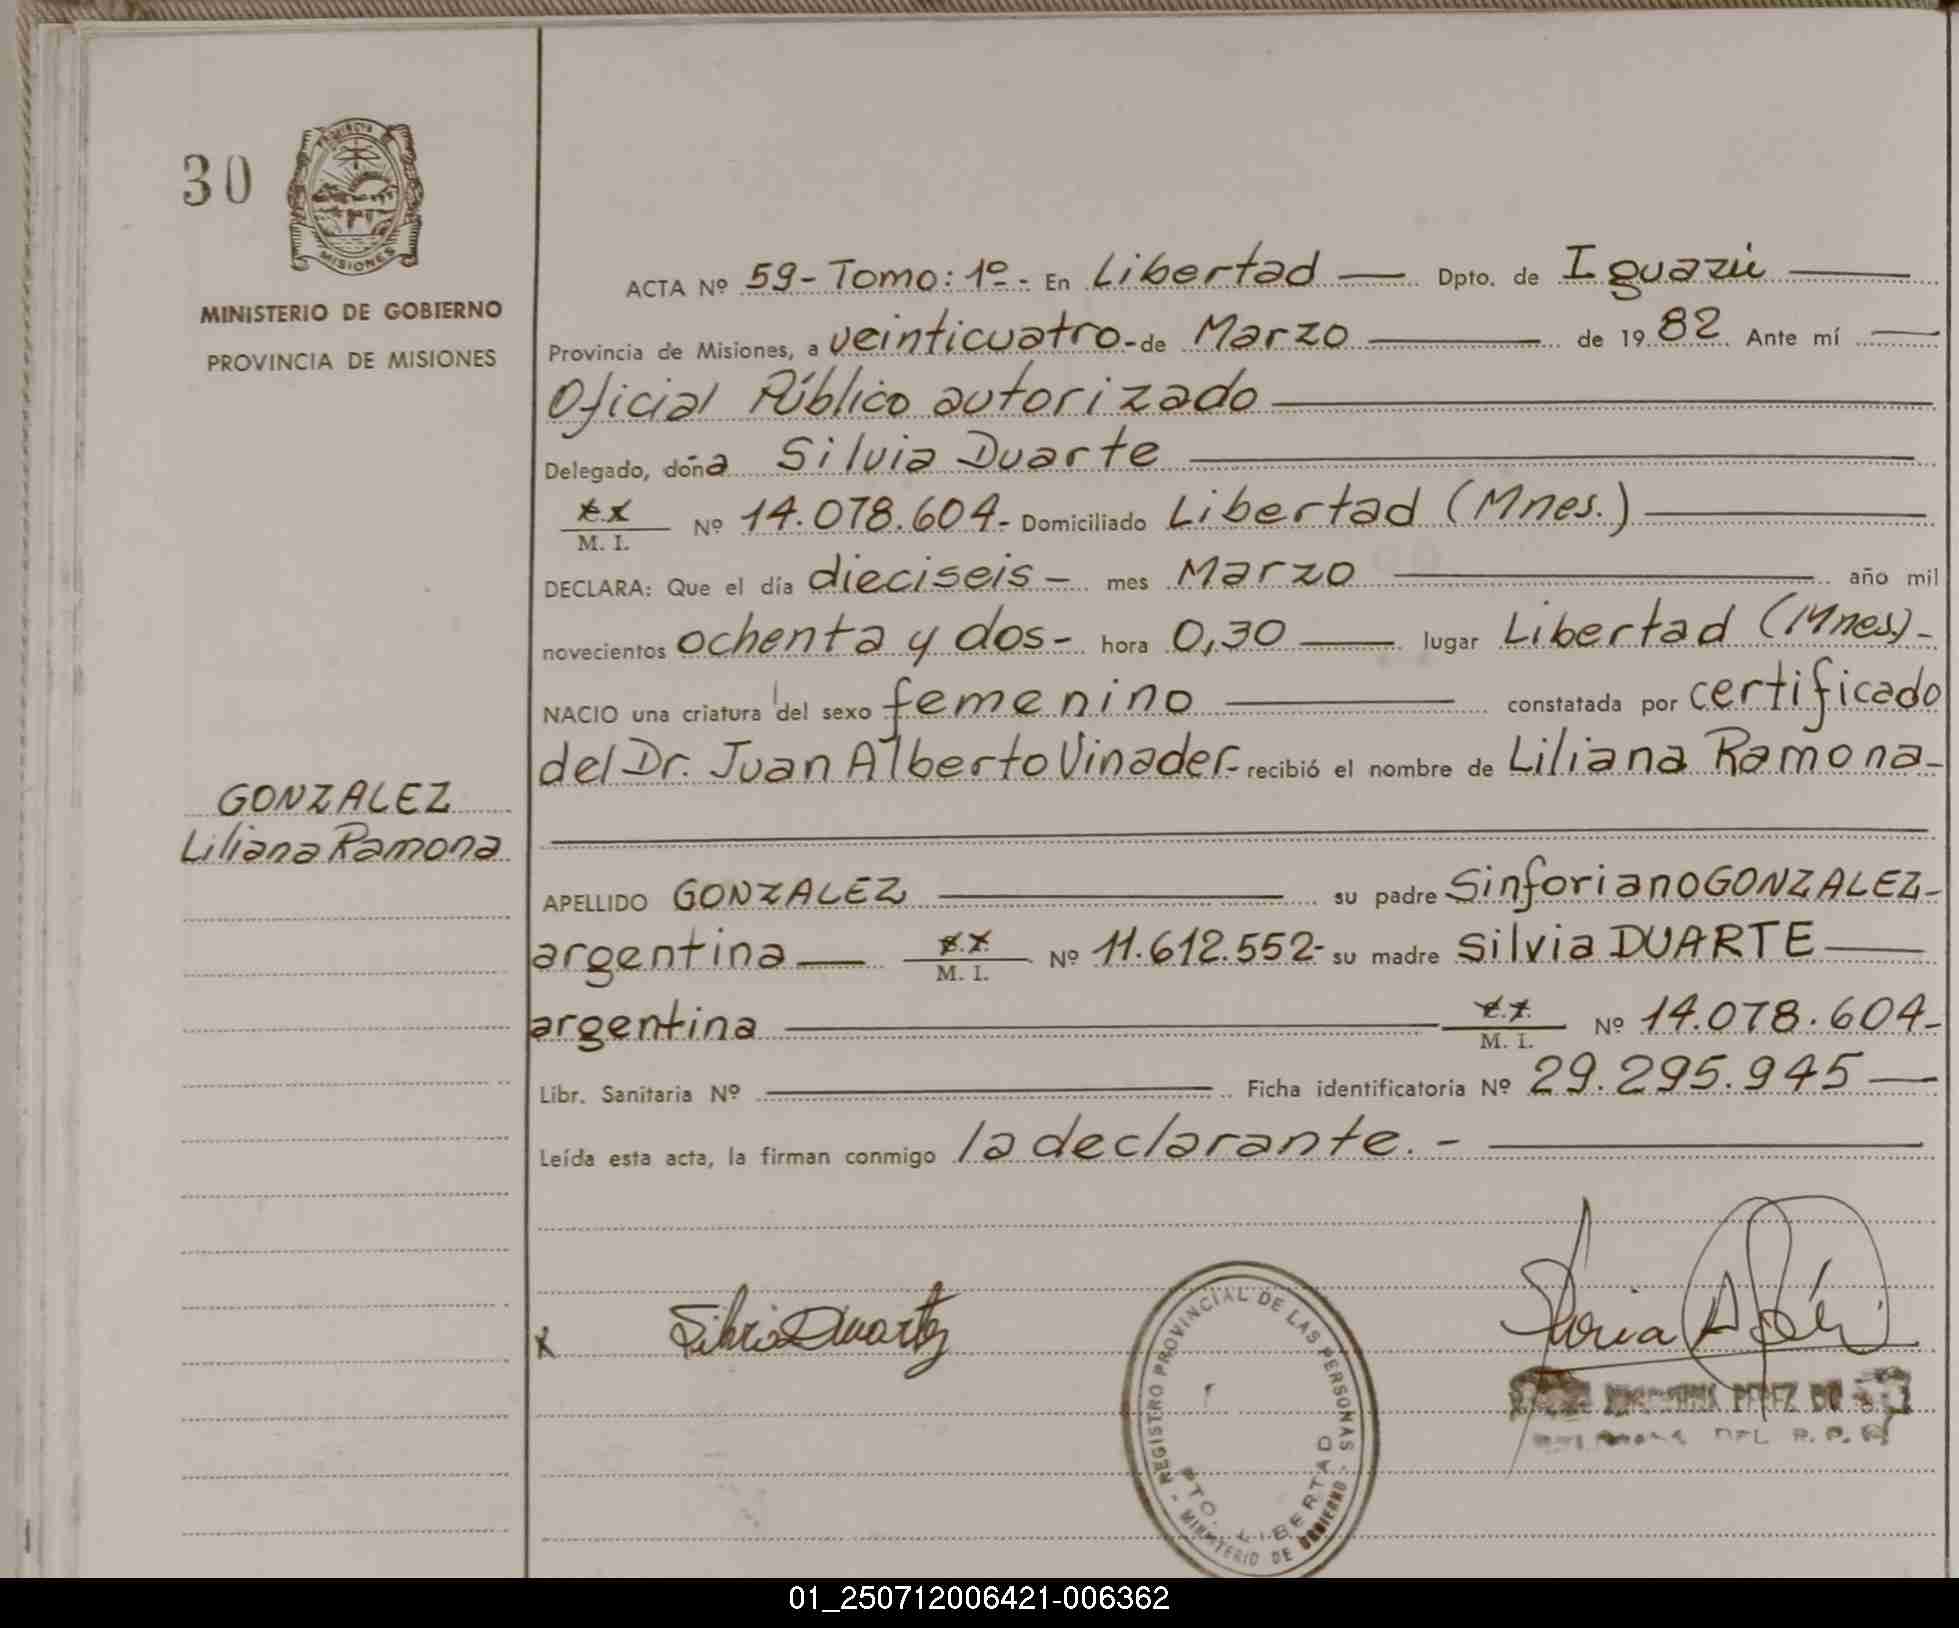 30
PROVINCIA
MISIONES
MINISTERIO DE GOBIERNO
PROVINCIA DE MISIONES
ACTA Nº 59- Tomo: 1º- En Libertad Dpto. de Iguazú
Provincia de Misiones, a veinticuatro- de Marzo de 1982 Ante mí
Oficial Público autorizado
Delegado, doña Silvia Duarte
M. I. Nº 14.078.604- Domiciliado Libertad (Mnes.)
DECLARA: Que el día dieciseis- mes Marzo año mil
novecientos ochenta y dos- hora 0,30 lugar Libertad (Mnes)-
NACIO una criatura del sexo femenino constatada por certificado
del Dr. Juan Alberto Vinader- recibió el nombre de Liliana Ramona-
GONZALEZ
Liliana Ramona
APELLIDO GONZALEZ su padre Sinforiano GONZALEZ-
argentina M. I. Nº 11.612.552- su madre Silvia DUARTE
argentina M. I. Nº 14.078.604-
Libr. Sanitaria Nº Ficha identificatoria Nº 29.295.945
Leída esta acta, la firman conmigo la declarante.-
x Silvia Duarte
REGISTRO PROVINCIAL DE LAS PERSONAS
PTO. LIBERTAD
- MINISTERIO DE GOBIERNO -
PEREZ DE
DEL R.P.P.
01_250712006421-006362